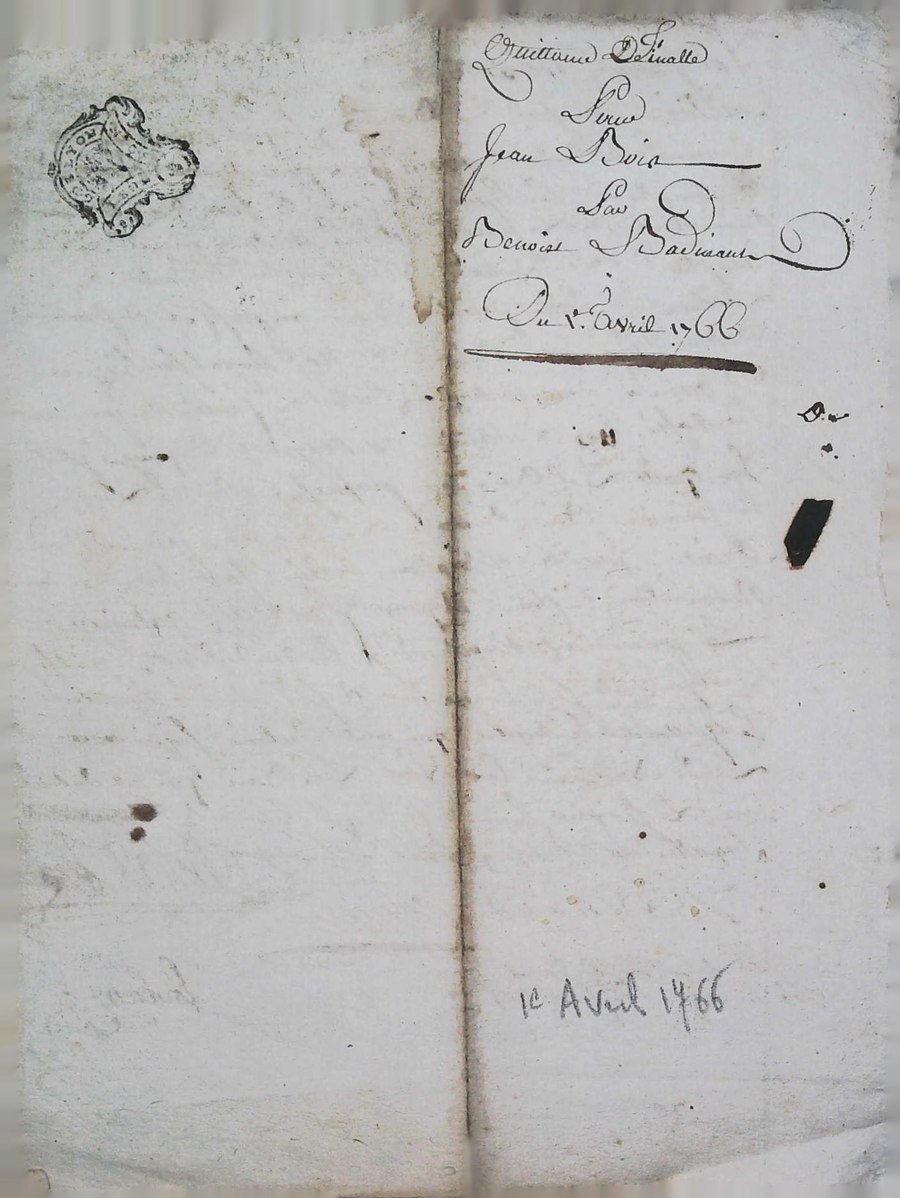 Quittance De Finalle
Pour
Jean Bois
Par
Benoist Badinand
Du 1er. avril 1766
1e Avril 1766